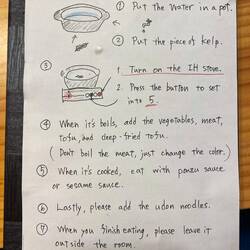 ① Put the water in a pot.
② Put the piece of kelp.
③
1. Turn on the IH stove.
2. Press the button to set
into 5.
④ When it's boils, add the vegetables, meat,
tofu, and deep-fried tofu.
(Don't boil the meat, just change the color.)
⑤ When it's cooked, eat with ponzu sauce
or sesame sauce.
⑥ Lastly, please add the udon noodles.
⑦ When you finish eating, please leave it
outside the room.